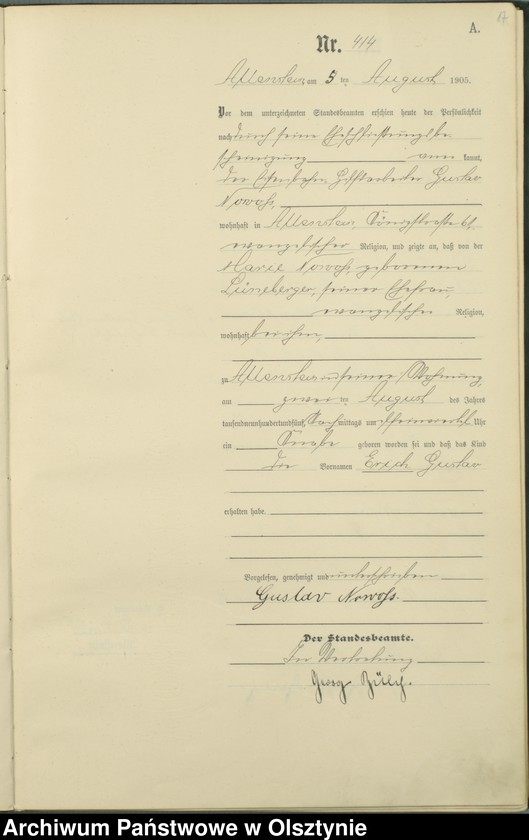 17
A.
Nr. 414
Allenstein, am 5 ten August 1905.
Vor dem unterzeichneten Standesbeamten erschien heute der Persönlichkeit
nach durch seine Eheschließungsbe-
scheinigung kannt,
der Eisenbahn Hilfsarbeiter Gustav
Nowoß,
wohnhaft in Allenstein, Königstraße
evangelischer Religion, und zeigte an, daß von der
Marie Nowoß, geborenen
Lüneberger, seiner Ehefrau,
evangelischer Religion,
wohnhaft bei ihm,
zu Allenstein in seiner Wohnung,
am zwei ten August des Jahres
tausendneunhundertundfünf, Nachmittags um Uhr
ein Knabe geboren worden sei und daß das Kind
die Vornamen Erich Gustav
erhalten habe.
Vorgelesen, genehmigt und unterschrieben
Gustav Nowoß.
Der Standesbeamte.
In Vertretung
Georg
Archiwum Państwowe w Olsztynie